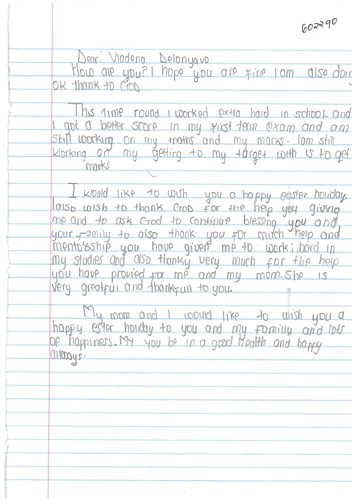 602290
Dear: Vladena Delonyavo.
How are you? I hope you are fine I am also doin
OK thank to God
This time round I worked extra hard in school and
I got a better score in my first term exam and am
still working on my maths and my marks. Iam still
Working on my getting to my target with is to get
marks
I would like to wish you a happy easter holiday
I also wish to thank God for the help you giving
me and to ask God to continue blessing you and
your family to also thank you for much help and
mentorship you have given me to work hard in
my studies and also thanky very much for the help
you have provied for me and my mom. She is
very greatful and thankfun to you.
My mom and I would like to wish you a
happy ester holiday to you and my familly and lots
of happiness. My you be in a good Health and happy
allways.